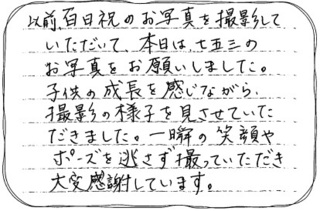 以前、百日祝のお写真を撮影して
いただいて、本日は、七五三の
お写真をお願いしました。
子供の成長を感じながら、
撮影の様子を見させていた
だきました。一瞬の笑顔や
ポーズを逃さず撮っていただき
大変感謝しています。